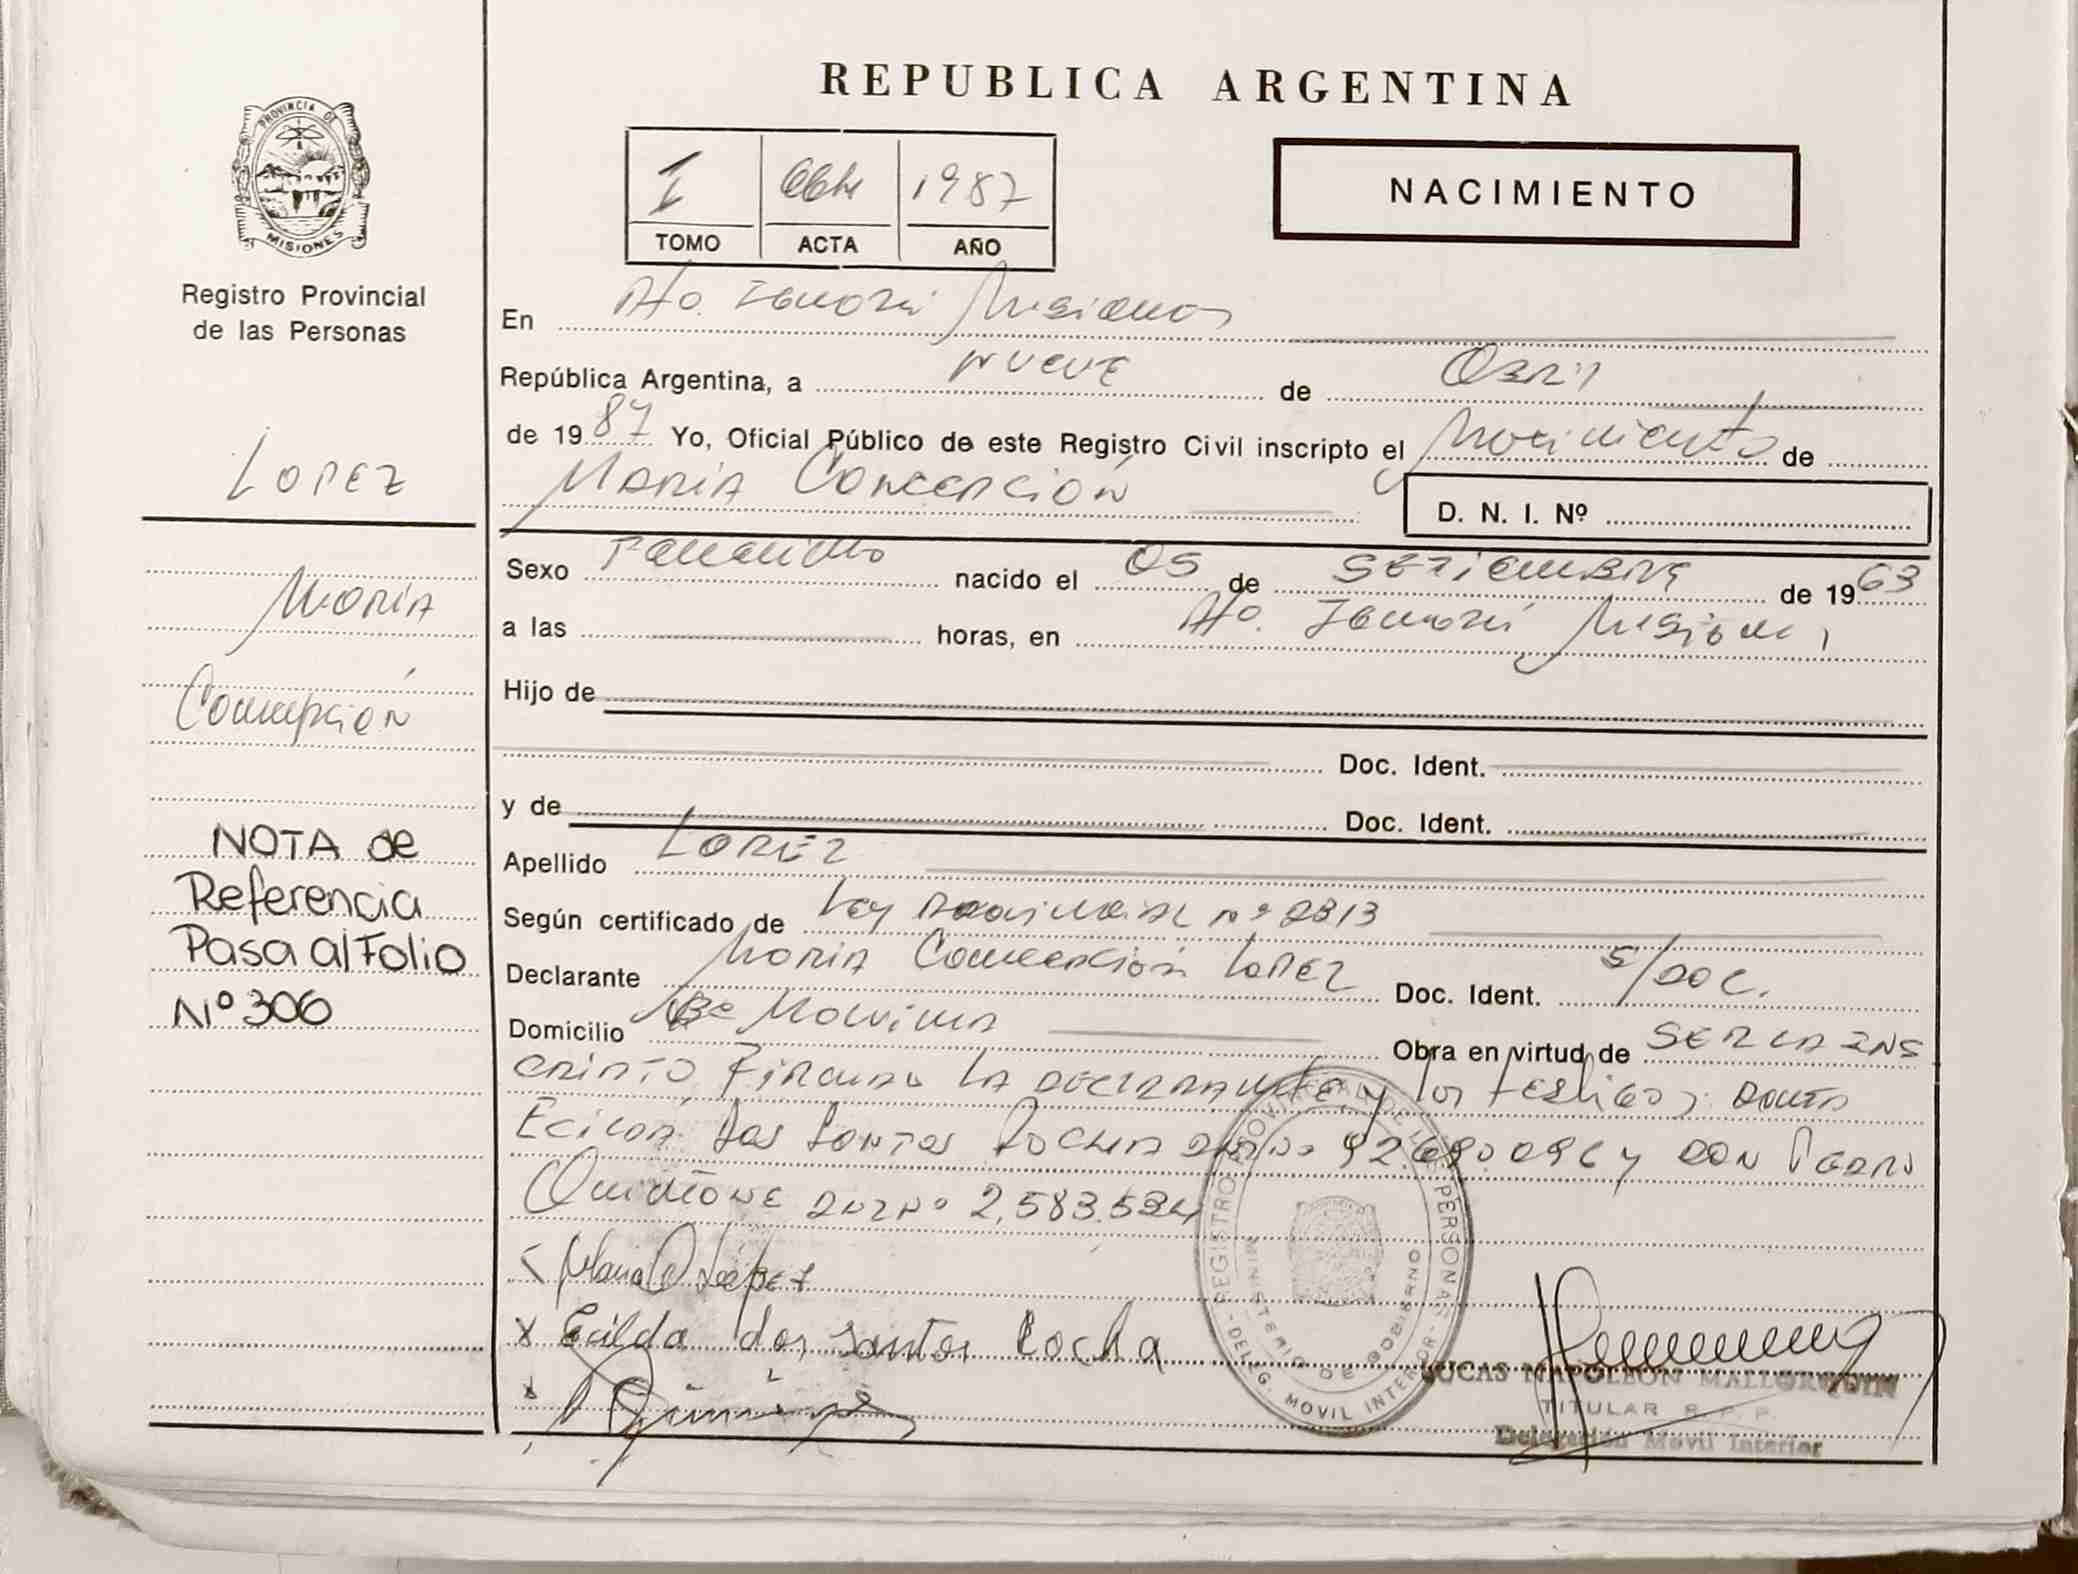 REPUBLICA ARGENTINA
PROVINCIA DE
MISIONES
Registro Provincial
de las Personas
I 1987
TOMO ACTA AÑO
NACIMIENTO
LOPEZ
MARIA
Concepción
NOTA de
Referencia
Pasa al Folio
Nº 306
En Misiones
República Argentina, a NUEVE de Abril
de 1987 Yo, Oficial Público de este Registro Civil inscripto el Nacimiento de
MARIA CONCEPCIÓN
D. N. I. Nº
Sexo Femenino nacido el 05 de SETIEMBRE de 1963
a las horas, en Misiones
Hijo de
Doc. Ident.
y de Doc. Ident.
Apellido LOPEZ
Según certificado de Ley Nº 2313
Declarante MARIA Concepción LOPEZ Doc. Ident. S/DOC.
Domicilio Obra en virtud de SER LA INS
CRIPTO, Firman LA DECLARANTE y los testigos: DOÑA
Dos Santos Rocha 92.690.096 y DON PEDRO
2.583.524
Maria C López
x Ecilda dos santos Rocha
x
REGISTRO PROVINCIAL DE LAS PERSONAS
MINISTERIO DE GOBIERNO
-DELEG. MOVIL INTERIOR-
LUCAS NAPOLEON MALLORQUIN
TITULAR R. P. P.
Delegación Movil Interior